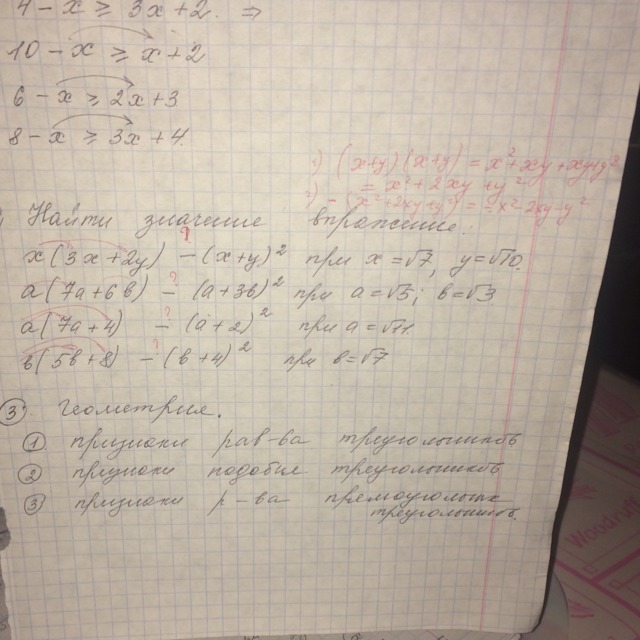 4 - x ≥ 3x + 2. ⇒
10 - x ≥ x + 2
6 - x ≥ 2x + 3
8 - x ≥ 3x + 4
1) (x+y)(x+y) = x² + xy + xy + y²
= x² + 2xy + y²
2) - (x² + 2xy + y²) = - x² - 2xy - y²
Найти значение впражение:
?
x(3x+2y) - (x+y)² при x = √7, y = √10.
?
a(7a+6в) - (a+3в)² при a = √5; в = √3
?
a(7a+4) - (a+2)² при a = √11.
?
в(5в+8) - (в+4)² при в = √7
③ Геометрия.
① признаки рав-ва треугольников
② признаки подобия треугольников
③ признаки р-ва прямоугольных
треугольник.
Woodcraft